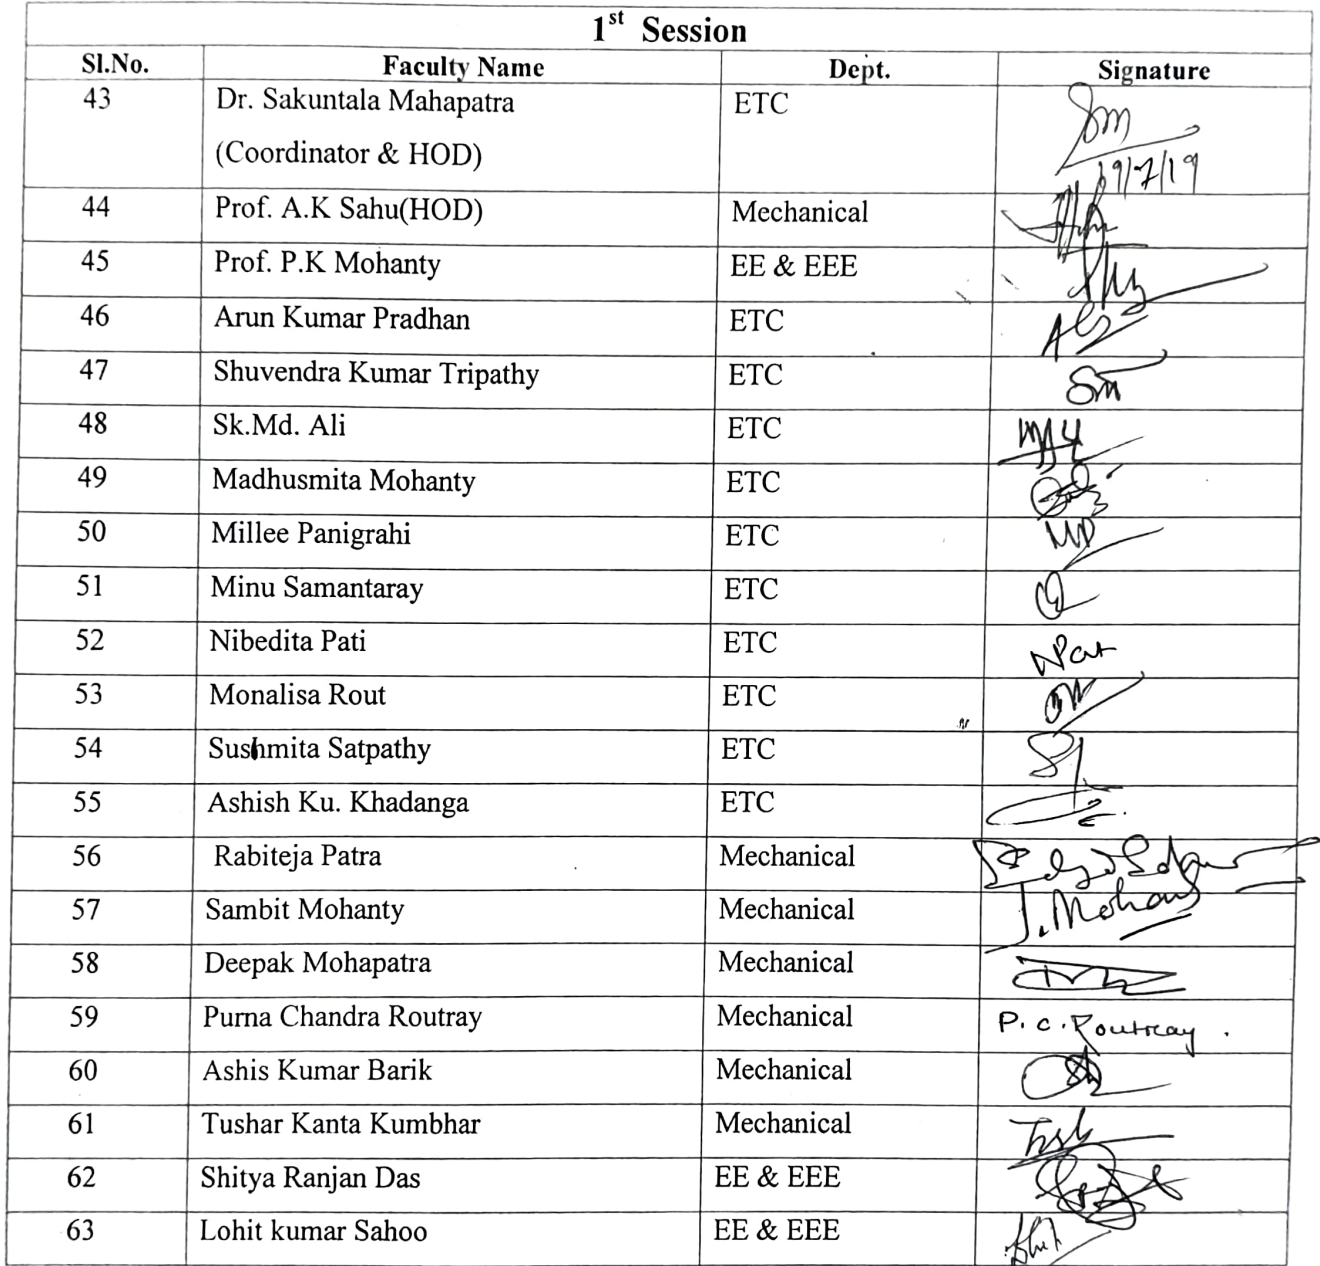 1st Session
Sl.No. Faculty Name Dept. Signature
43 Dr. Sakuntala Mahapatra ETC Sm
(Coordinator & HOD)
19/7/19
44 Prof. A.K Sahu(HOD) Mechanical
45 Prof. P.K Mohanty EE & EEE
46 Arun Kumar Pradhan ETC
47 Shuvendra Kumar Tripathy ETC
48 Sk.Md. Ali ETC
49 Madhusmita Mohanty ETC
50 Millee Panigrahi ETC
51 Minu Samantaray ETC
52 Nibedita Pati ETC
53 Monalisa Rout ETC
54 Sushmita Satpathy ETC
55 Ashish Ku. Khadanga ETC
56 Rabiteja Patra Mechanical
57 Sambit Mohanty Mechanical
58 Deepak Mohapatra Mechanical
59 Purna Chandra Routray Mechanical P.C.Routray.
60 Ashis Kumar Barik Mechanical
61 Tushar Kanta Kumbhar Mechanical
62 Shitya Ranjan Das EE & EEE
63 Lohit kumar Sahoo EE & EEE